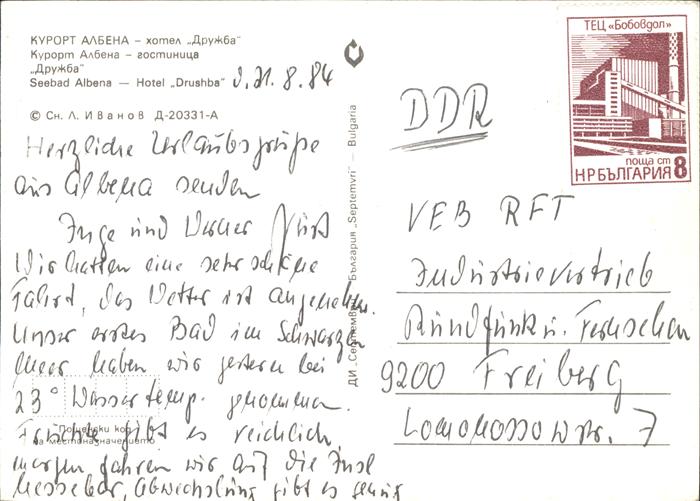 КУРОРТ АЛБЕНА – хотел „Дружба“
Курорт Албена – гостиница
„Дружба“
Seebad Albena — Hotel „Drushba“
d. 31.8.84
© Сн. Л. Иванов Д-20331-А
Herzliche Urlaubsgrüße
aus Albena senden
Inge und Werner
Wir hatten eine sehr schöne
Fahrt, das Wetter ist angenehm.
Unser erstes Bad im Schwarzen
Meer haben wir gestern bei
23° Wassertemp. genommen.
Früchte gibt es reichlich,
morgen fahren wir auf die Insel
Nessebar, Abwechslung gibt es genug
Пощенски код
на местоназначението
ДИ „Септември“ — България „Septemvri“ — Bulgaria
ТЕЦ „Бобовдол“
поща ст
НР БЪЛГАРИЯ 8
DDR
VEB RFT
Industrievertrieb
Rundfunk u. Fernsehen
9200 Freiberg
Lomonossowstr. 7